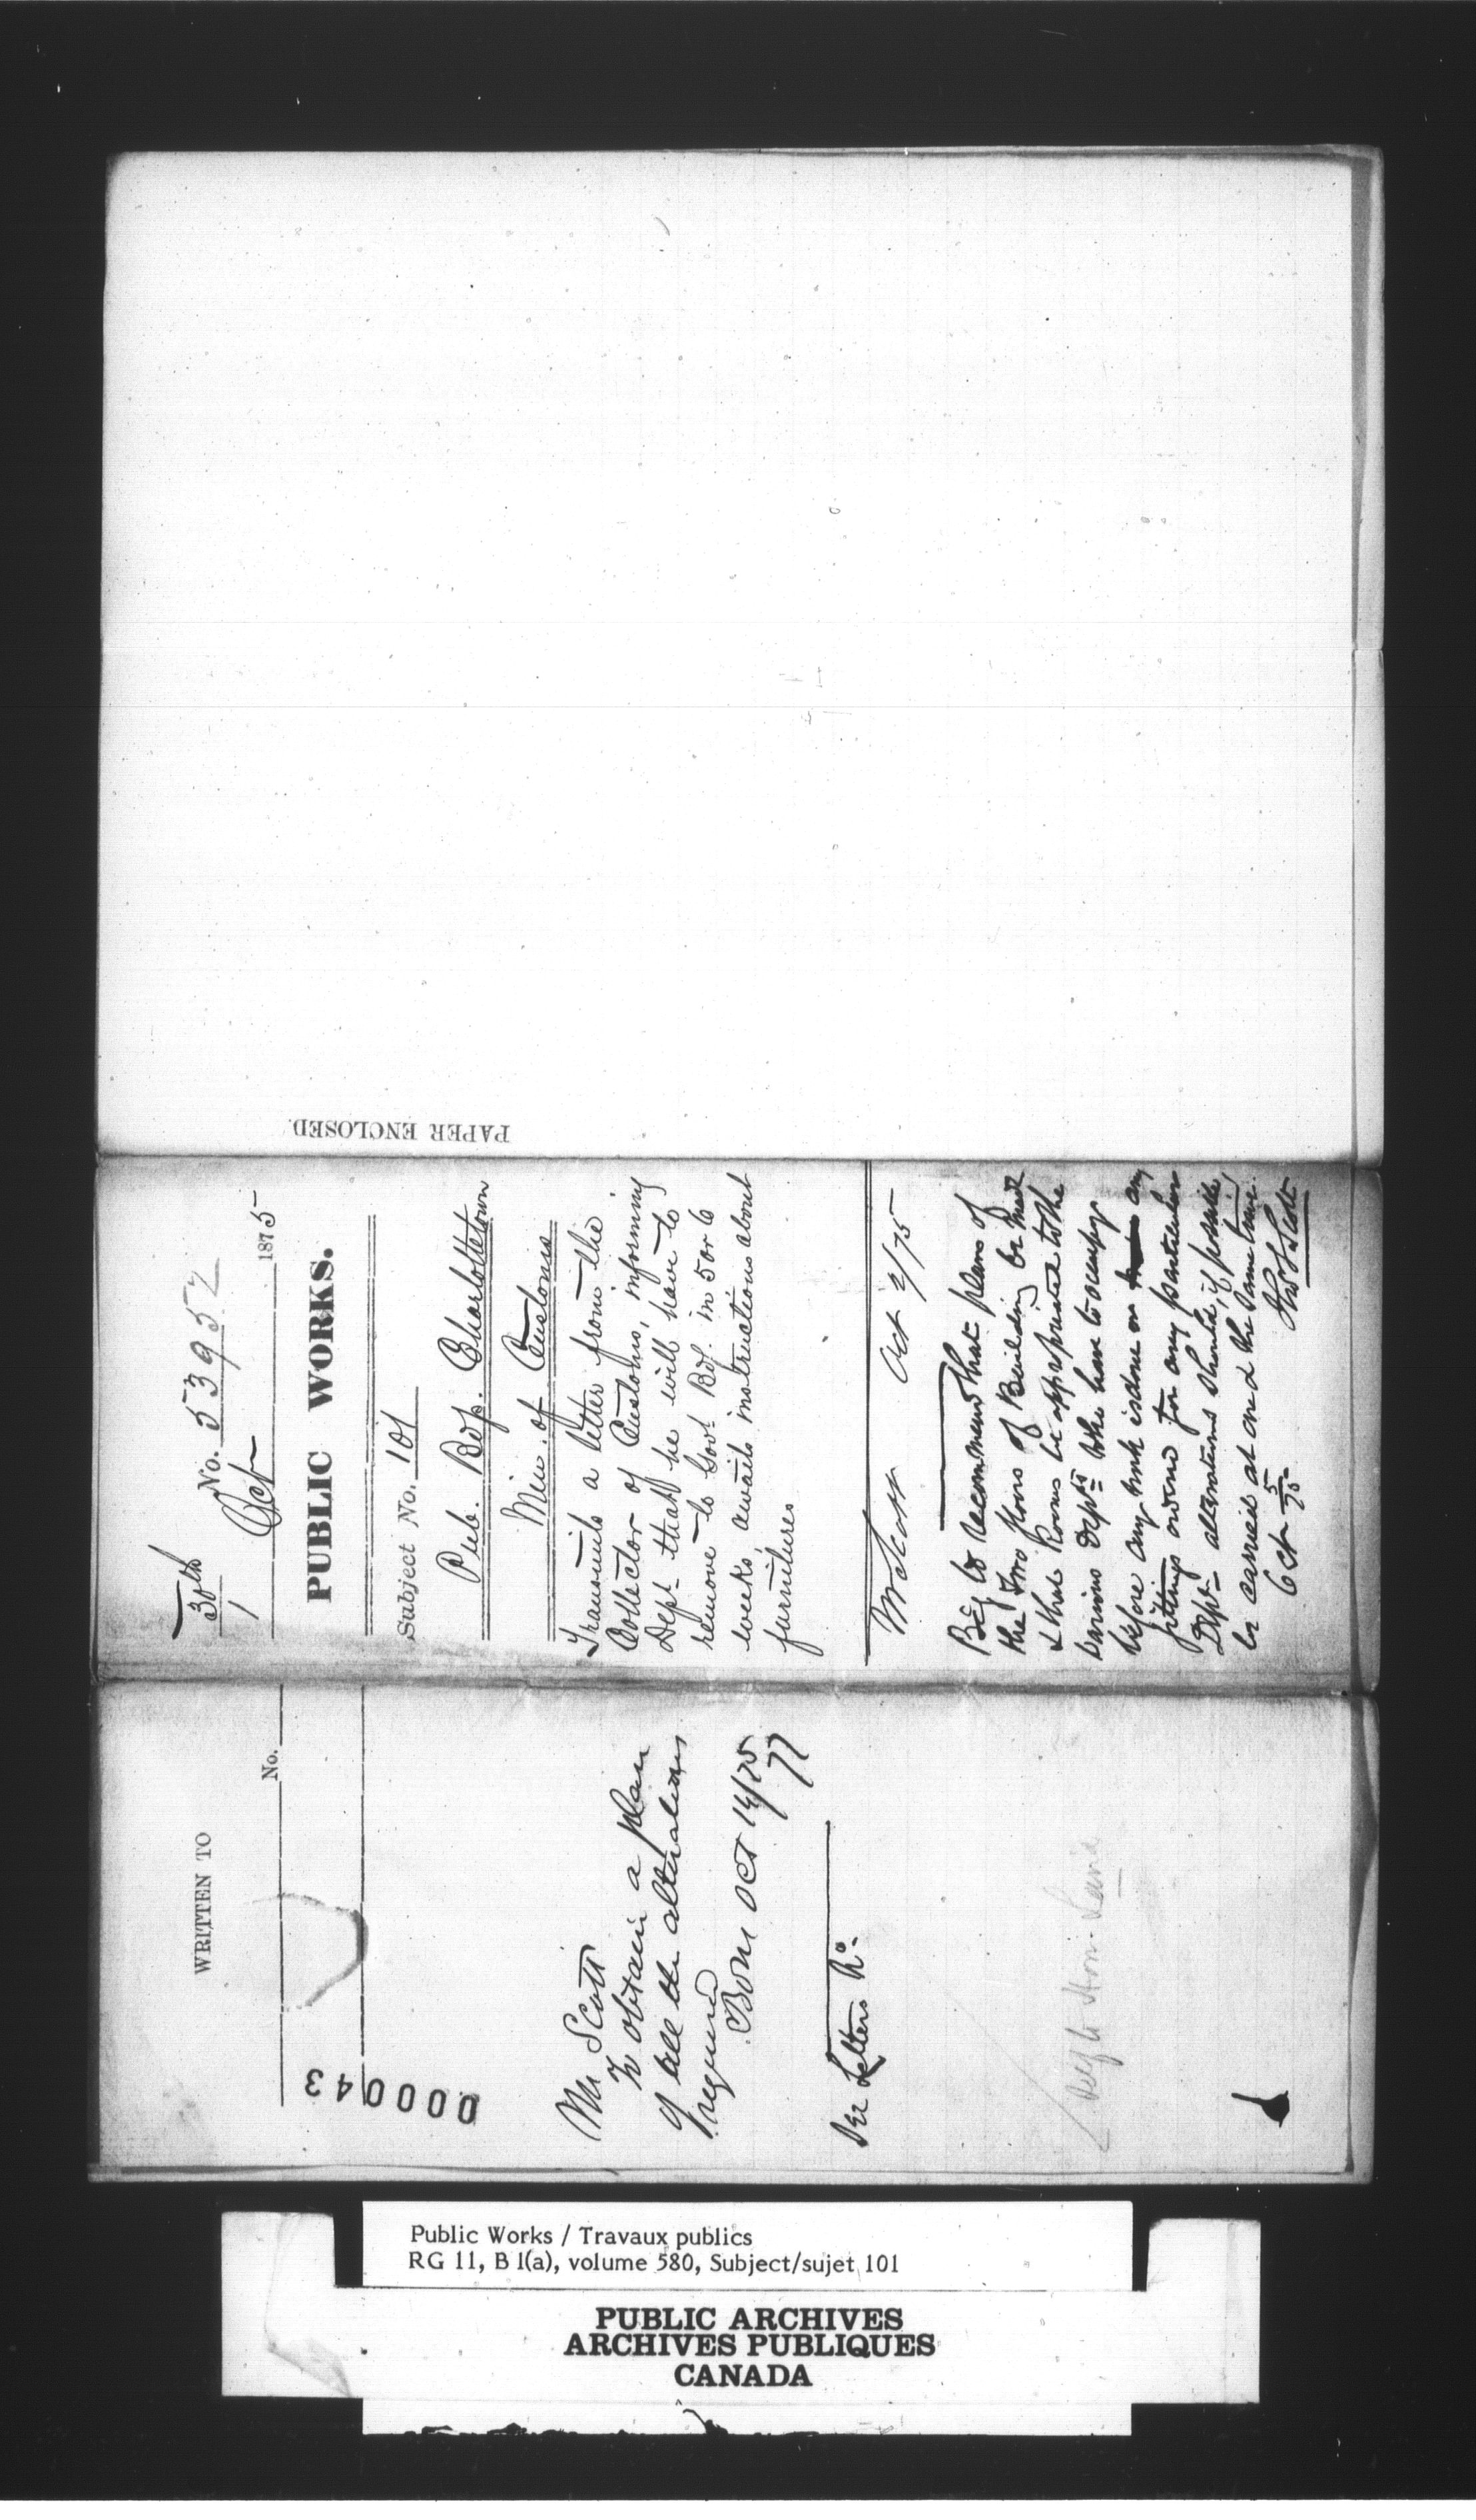 30th
1
No. 53952
Oct 1875
PUBLIC WORKS.
Subject No. 101
Pub. Bdg. Charlottetown
Min. of Customs
Transmits a letter from the
Collector of Customs, informing
Dept that he will have to
remove to Govt Bdg. in 5 or 6
weeks, awaits instructions about
furnitures
Mr Scott Oct 2/75
Beg to recommend that plans of
the Two floors of Building be made
& that Rooms be appropriated to the
various Depts who have to occupy
before any work is done or any
fittings ordered for any particular
Dept - alterations should, if possible,
be carried at one & the same time.
Oct 5 75
Thos S Scott
PAPER ENCLOSED.
WRITTEN TO
No.
000043
Mr Scott
To obtain a plan
of all the alterations
required
Oct 14/75
See Letters No.
Public Works / Travaux publics
RG 11, B 1(a), volume 580, Subject/sujet 101
PUBLIC ARCHIVES
ARCHIVES PUBLIQUES
CANADA